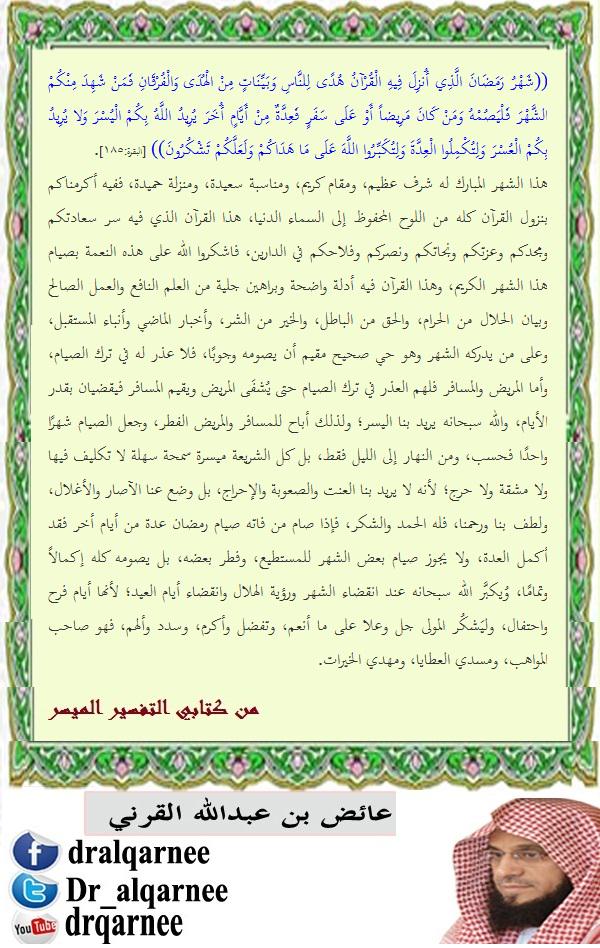 ((شَهْرُ رَمَضَانَ الَّذِي أُنزِلَ فِيهِ الْقُرْآنُ هُدًى لِلنَّاسِ وَبَيِّنَاتٍ مِنْ الْهُدَى وَالْفُرْقَانِ فَمَنْ شَهِدَ مِنْكُمْ
الشَّهْرَ فَلْيَصُمْهُ وَمَنْ كَانَ مَرِيضاً أَوْ عَلَى سَفَرٍ فَعِدَّةٌ مِنْ أَيَّامٍ أُخَرَ يُرِيدُ اللَّهُ بِكُمْ الْيُسْرَ وَلا يُرِيدُ
بِكُمْ الْعُسْرَ وَلِتُكْمِلُوا الْعِدَّةَ وَلِتُكَبِّرُوا اللَّهَ عَلَى مَا هَدَاكُمْ وَلَعَلَّكُمْ تَشْكُرُونَ)) [البقرة:١٨٥].
هذا الشهر المبارك له شرف عظيم، ومقام كريم، ومناسبة سعيدة، ومنزلة حميدة، ففيه أكرمناكم
بنزول القرآن كله من اللوح المحفوظ إلى السماء الدنيا، هذا القرآن الذي فيه سر سعادتكم
ومجدكم وعزتكم ونجاتكم ونصركم وفلاحكم في الدارين، فاشكروا الله على هذه النعمة بصيام
هذا الشهر الكريم، وهذا القرآن فيه أدلة واضحة وبراهين جلية من العلم النافع والعمل الصالح
وبيان الحلال من الحرام، والحق من الباطل، والخير من الشر، وأخبار الماضي وأنباء المستقبل،
وعلى من يدركه الشهر وهو حي صحيح مقيم أن يصومه وجوبًا، فلا عذر له في ترك الصيام،
وأما المريض والمسافر فلهم العذر في ترك الصيام حتى يُشفَى المريض ويقيم المسافر فيقضيان بقدر
الأيام، والله سبحانه يريد بنا اليسر؛ ولذلك أباح للمسافر والمريض الفطر، وجعل الصيام شهرًا
واحدًا فحسب، ومن النهار إلى الليل فقط، بل كل الشريعة ميسرة سمحة سهلة لا تكليف فيها
ولا مشقة ولا حرج؛ لأنه لا يريد بنا العنت والصعوبة والإحراج، بل وضع عنا الآصار والأغلال،
ولطف بنا ورحمنا، فله الحمد والشكر، فإذا صام من فاته صيام رمضان عدة من أيام أخر فقد
أكمل العدة، ولا يجوز صيام بعض الشهر للمستطيع، وفطر بعضه، بل يصومه كله إكمالاً
وتمامًا، وُيكبَّر الله سبحانه عند انقضاء الشهر ورؤية الهلال وانقضاء أيام العيد؛ لأنها أيام فرح
واحتفال، وليَشكُر المولى جل وعلا على ما أنعم، وتفضل وأكرم، وسدد وألهم، فهو صاحب
المواهب، ومسدي العطايا، ومهدي الخيرات.
من كتابي التفسير الميسر
عائض بن عبدالله القرني
dralqarnee
Dr_alqarnee
You Tube drqarnee